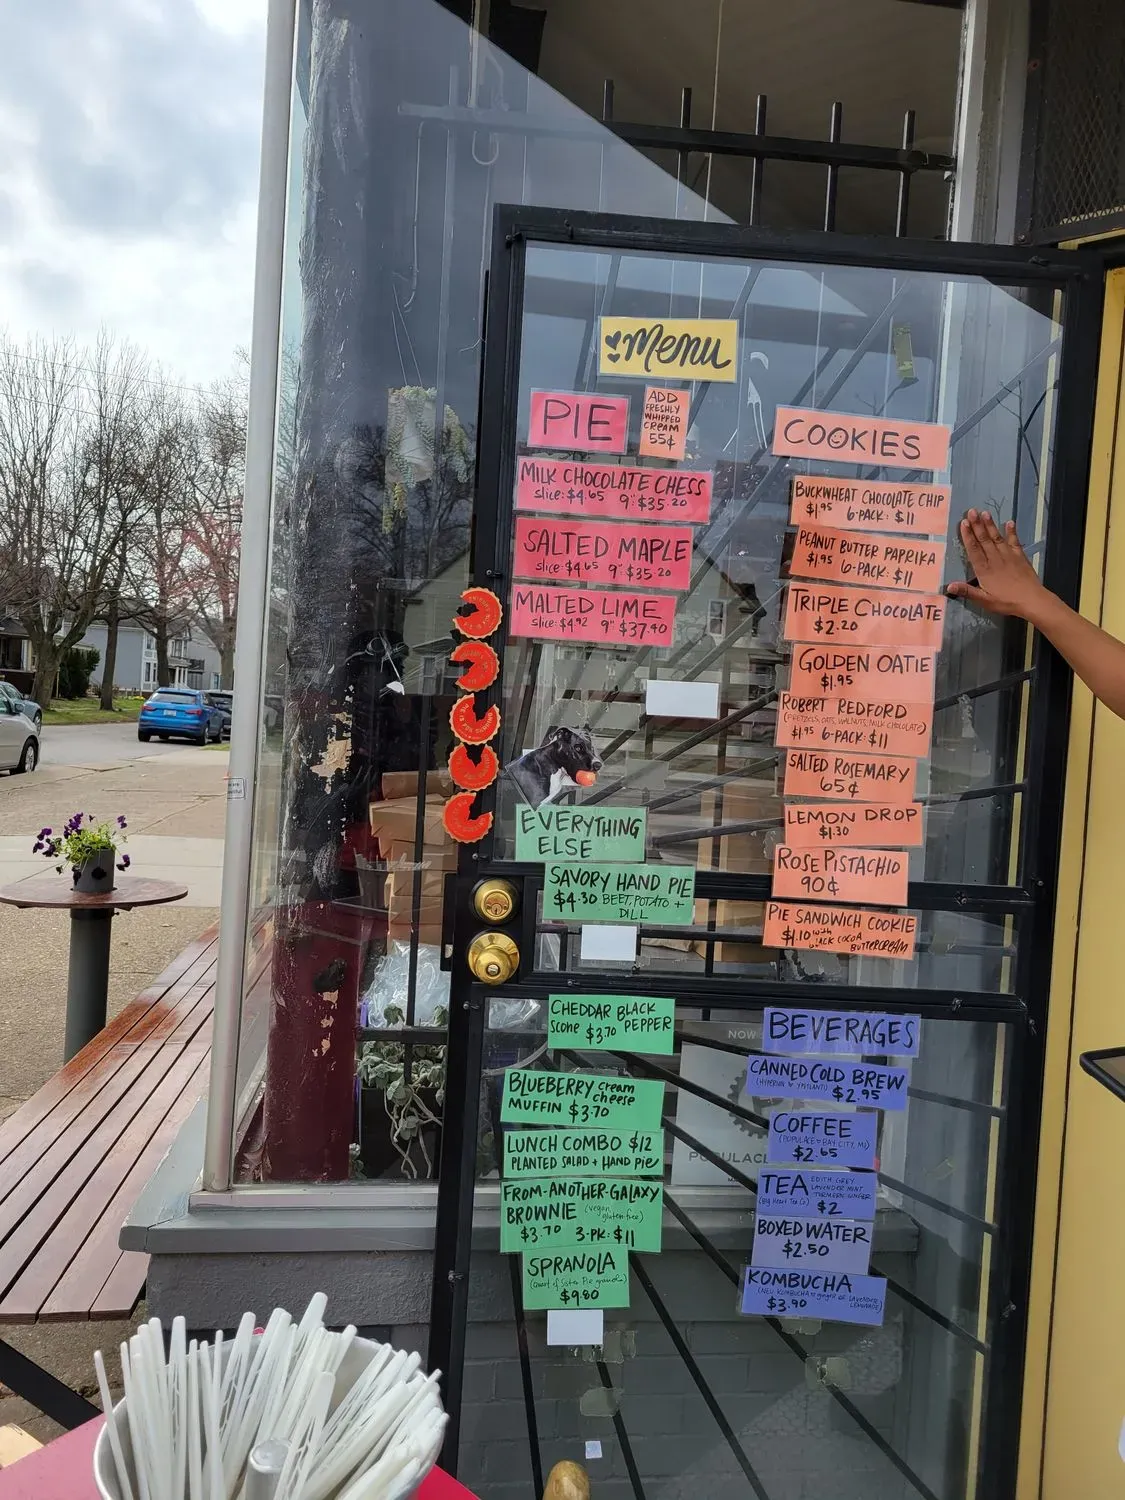 Menu
PIE
ADD
FRESHLY
WHIPPED
CREAM
55¢
MILK CHOCOLATE CHESS
slice: $4.65 9" $35.20
SALTED MAPLE
slice: $4.65 9" $35.20
MALTED LIME
slice: $4.92 9" $37.40
COOKIES
BUCKWHEAT CHOCOLATE CHIP
$1.95 6-PACK: $11
PEANUT BUTTER PAPRIKA
$1.95 6-PACK: $11
TRIPLE CHOCOLATE
$2.20
GOLDEN OATIE
$1.95
ROBERT REDFORD
(PRETZELS, OATS, WALNUTS, MILK CHOCOLATE)
$1.95 6-PACK: $11
SALTED ROSEMARY
65¢
LEMON DROP
$1.30
ROSE PISTACHIO
90¢
PIE SANDWICH COOKIE
$1.10 with
BLACK COCOA
BUTTERCREAM
EVERYTHING
ELSE
SAVORY HAND PIE
$4.30 BEET, POTATO +
DILL
CHEDDAR BLACK
scone $3.70 PEPPER
BLUEBERRY cream
cheese
MUFFIN $3.70
LUNCH COMBO $12
PLANTED SALAD + HAND PIE
FROM-ANOTHER-GALAXY
BROWNIE (vegan,
gluten free)
$3.70 3-PK: $11
SPRANOLA
(Quart of Sister Pie granola)
$9.80
NOW
BEVERAGES
CANNED COLD BREW
(HYPERION YPSILANTI) $2.95
COFFEE
(POPULACE BAY CITY, MI)
$2.65
TEA EDITH GREY
LAVENDER MINT
TURMERIC GINGER
(Big Heart Tea Co) $2
BOXED WATER
$2.50
KOMBUCHA
(NEU KOMBUCHA ginger or LAVENDER
LEMONADE)
$3.90